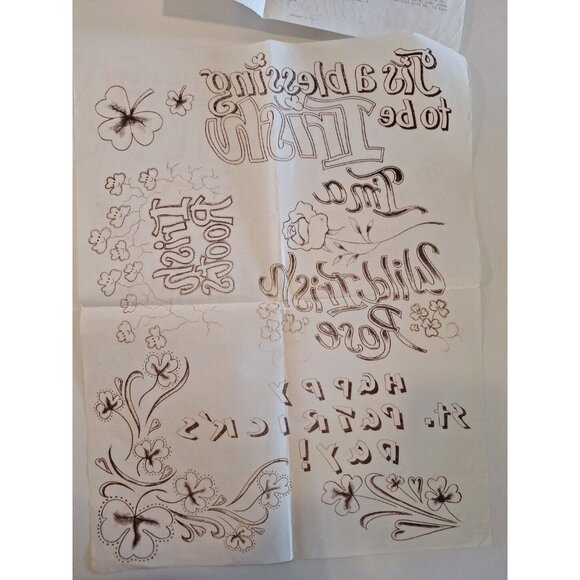 'Tis a blessing
to be
Irish
Irish
Roots
I'm a
Wild Irish
Rose
HAPPY
St. PATRICK'S
DAY!